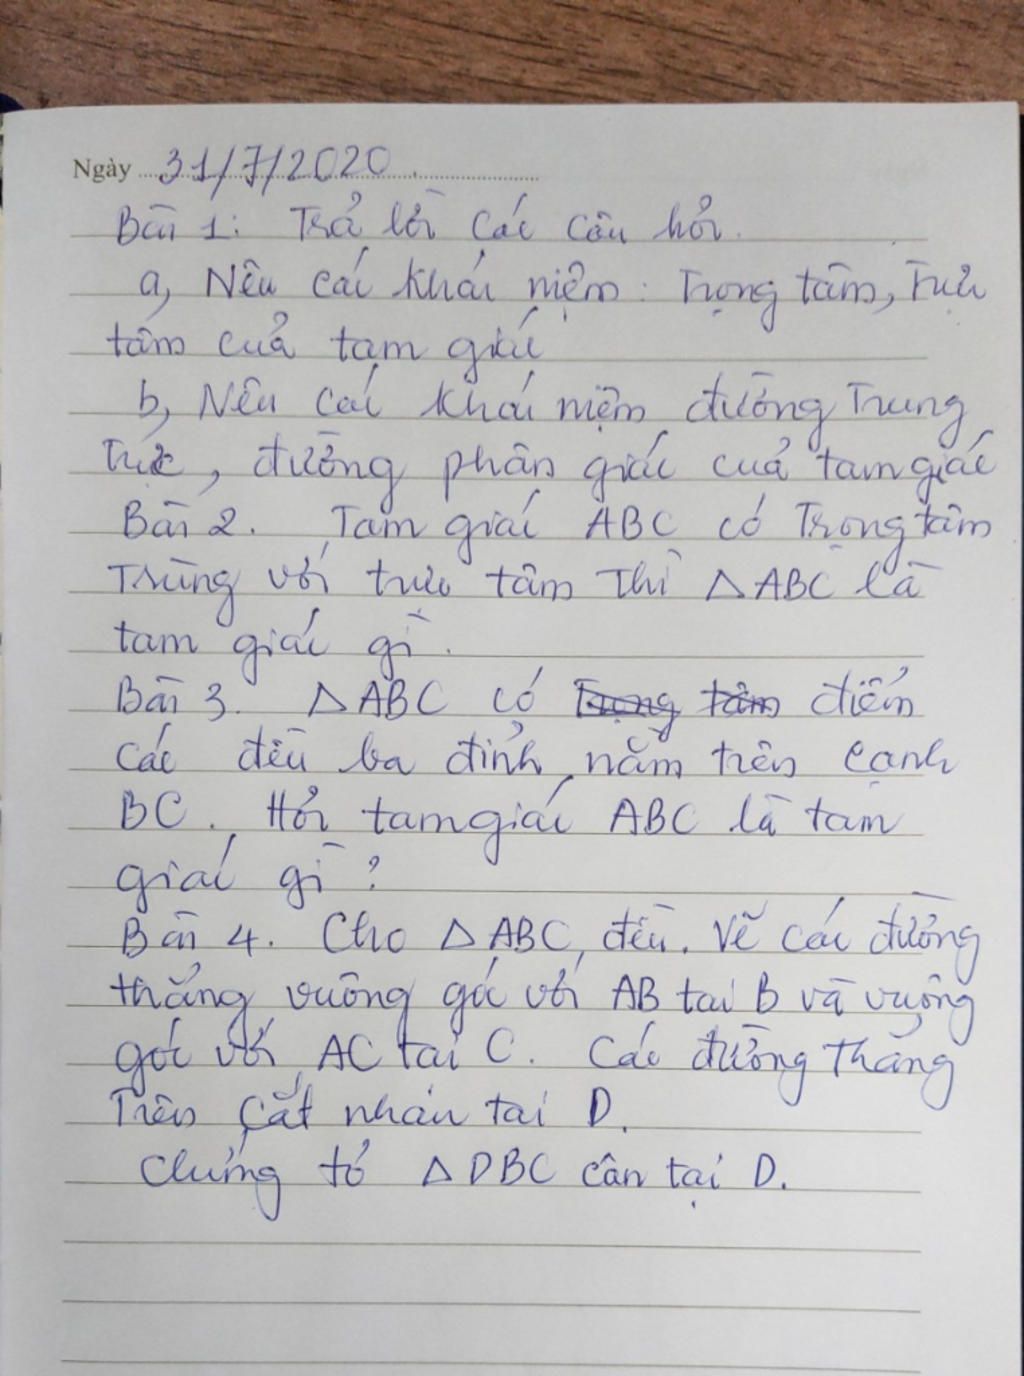 Ngày 31/7/2020
Bài 1: Trả lời các câu hỏi.
a, Nêu các khái niệm: Trọng tâm, Trực
tâm của tam giác
b, Nêu các khái niệm đường Trung
Trực, đường phân giác của tam giác
Bài 2. Tam giác ABC có Trọng tâm
Trùng với trực tâm Thì △ABC là
tam giác gì.
Bài 3. △ABC có Trọng tâm điểm
các đều ba đỉnh nằm trên cạnh
BC. Hỏi tam giác ABC là tam
giác gì?
Bài 4. Cho △ABC, đều. Vẽ các đường
thẳng vuông góc với AB tại B và vuông
góc với AC tại C. Các đường thẳng
Trên cắt nhau tại D.
Chứng tỏ △DBC cân tại D.